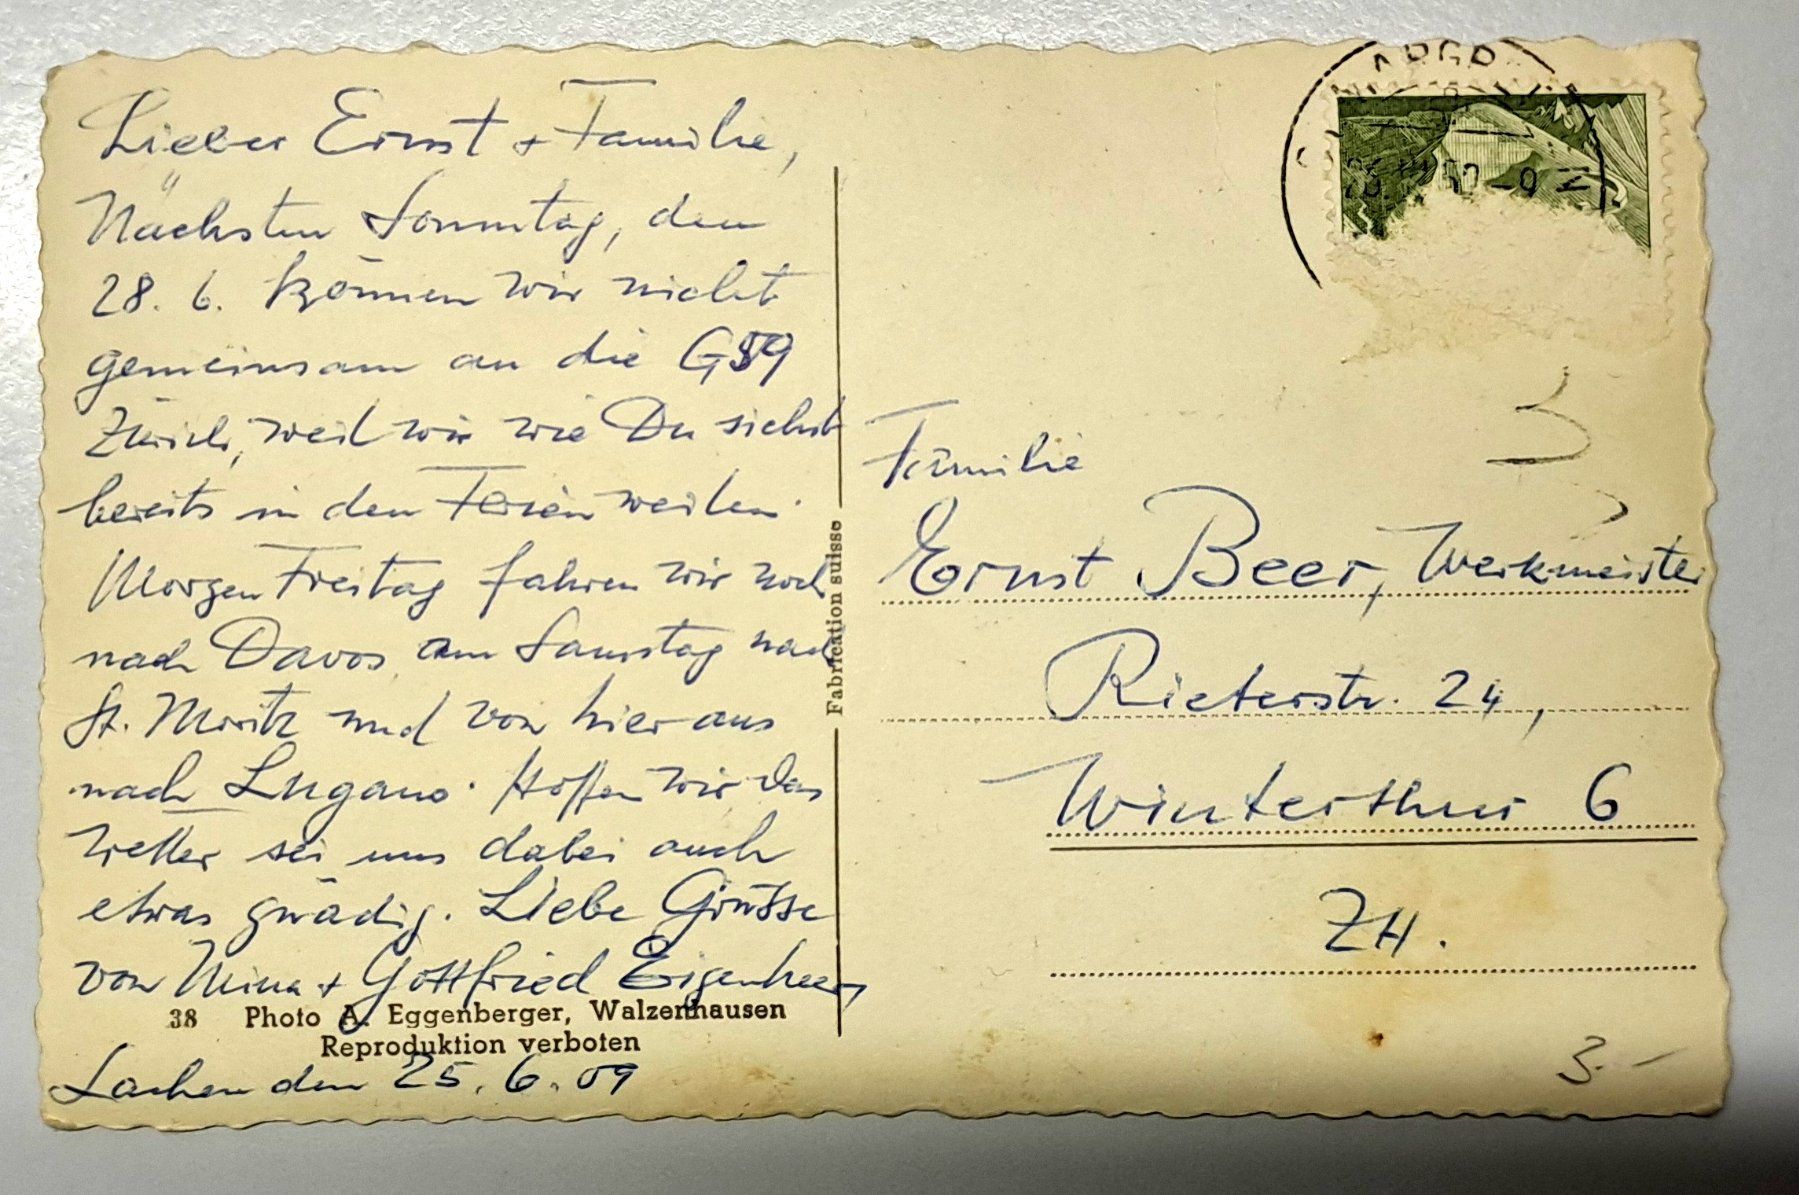 Lieber Ernst + Familie,
Nächsten Sonntag, den
28. 6. können wir nicht
gemeinsam an die G59
Zürich, weil wir wie Du siehst
bereits in den Ferien weilen.
Morgen Freitag fahren wir noch
nach Davos, am Samstag nach
St. Moritz und von hier aus
nach Lugano. Hoffen wir das
Wetter sei uns dabei auch
etwas gnädig. Liebe Grüsse
von Mina + Gottfried Eigenheer
38 Photo A. Eggenberger, Walzenhausen
Reproduktion verboten
Lachen den 25. 6. 59
Fabrication suisse
Familie
Ernst Beer, Werkmeister
Rieterstr. 24,
Winterthur 6
ZH.
3.-